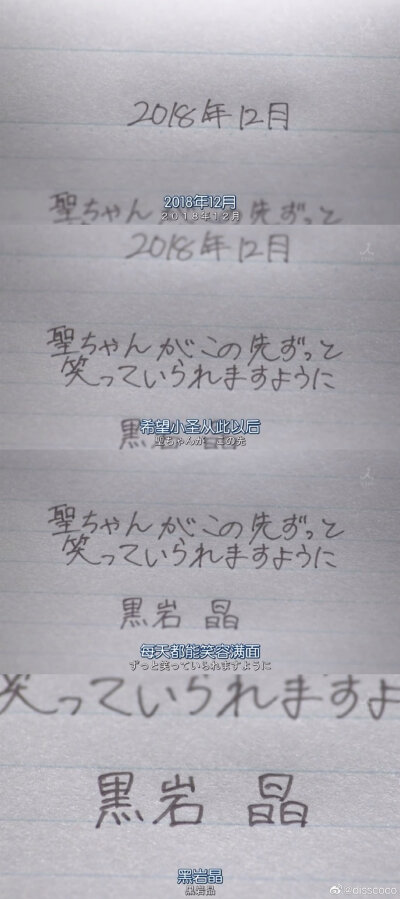 2018年12月
聖ちゃんがこの先ずっと
2018年12月
2018年12月
2018年12月
聖ちゃんがこの先ずっと
笑っていられますように
黒岩 晶
希望小圣从此以后
聖ちゃんが この先
聖ちゃんがこの先ずっと
笑っていられますように
黒岩 晶
每天都能笑容满面
ずっと笑っていられますように
笑っていられますよ
黒岩 晶
黑岩晶
黒岩晶
@disscoco